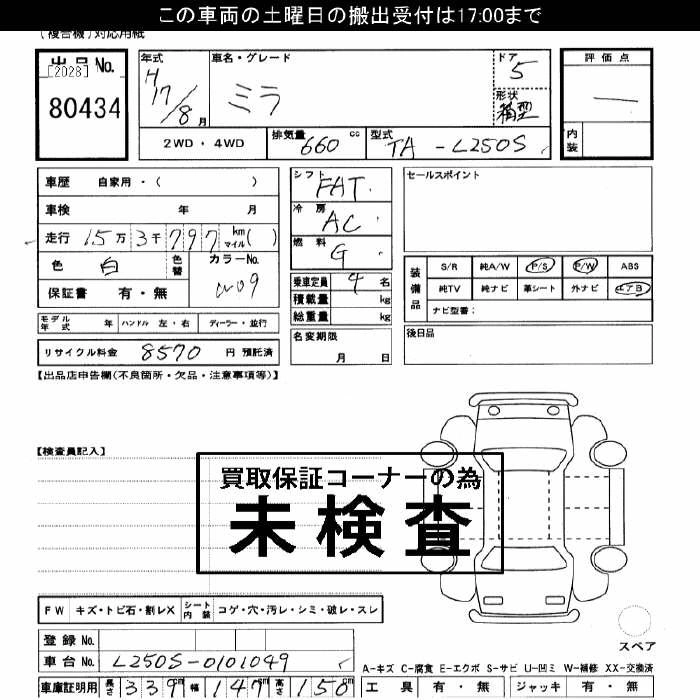 この車両の土曜日の搬出受付は17:00まで
(複合機)対応用紙
出品 No.
[2028]
80434
年式 H17/8月
車名・グレード
ミラ
ドア 5
形状 箱型
評価点
—
内装
2WD・4WD
排気量 660 cc
型式 TA - L250S
車歴 自家用・( )
車検 年 月
走行 15万 3千 797 km マイル ( )
色 白 色替 カラーNo. W09
保証書 有・無
シフト FAT
冷房 AC
燃料 G
乗車定員 4 名
積載量 kg
総重量 kg
名変期限
月 日
セールスポイント
装備品
S/R 純A/W P/S P/W ABS
純TV 純ナビ 革シート 外ナビ エアB
ナビ型番：
後日品
モデル年式 年 ハンドル 左・右 ディーラー・並行
リサイクル料金 8570 円 預託済
【出品店申告欄(不良箇所・欠品・注意事項等)】
【検査員記入】
買取保証コーナーの為
未検査
FW キズ・トビ石・割レX シート内装 コゲ・穴・汚レ・シミ・破レ・スレ
スペア
登録 No.
車台 No. L250S-0101049
A-キズ C-腐食 E-エクボ S-サビ U-凹ミ W-補修 XX-交換済
車庫証明用 長さ 339 cm 幅 147 cm 高さ 150 cm
工具 有・無 ジャッキ 有・無